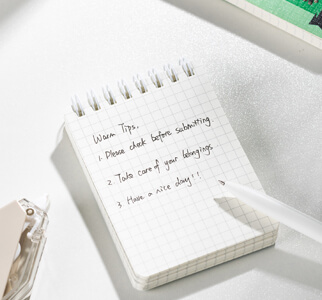 Warm Tips.
1. Please check before submitting.
2 Take care of your belongings
3. Have a nice day!!